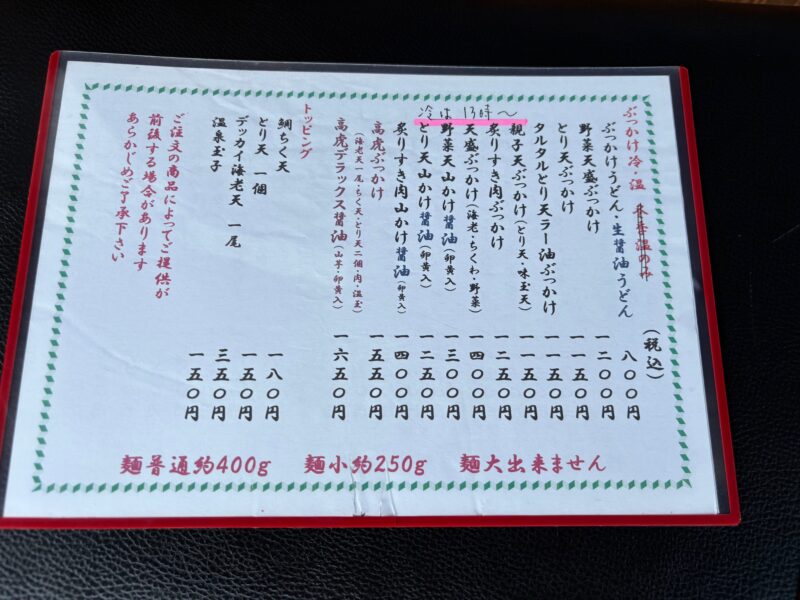 ぶっかけ冷・温 冬季温のみ
(税込)
ぶっかけうどん・生醤油うどん 八〇〇円
野菜天盛ぶっかけ 一二〇〇円
とり天ぶっかけ 一一五〇円
タルタルとり天ラー油ぶっかけ 一一五〇円
親子天ぶっかけ(とり天・味玉天) 一一五〇円
冷は13時〜
炙りすき肉ぶっかけ 一二五〇円
天盛ぶっかけ(海老・ちくわ・野菜) 一四〇〇円
野菜天山かけ醤油(卵黄入) 一三〇〇円
とり天山かけ醤油(卵黄入) 一二五〇円
炙りすき肉山かけ醤油(卵黄入) 一四〇〇円
高虎ぶっかけ 一五五〇円
(海老天一尾・ちく天・とり天二個・肉・温玉)
高虎デラックス醤油(山芋・卵黄入) 一六五〇円
トッピング
鯛ちく天 一八〇円
とり天 一個 一五〇円
デッカイ海老天 一尾 三五〇円
温泉玉子 一五〇円
ご注文の商品によってご提供が
前後する場合があります
あらかじめご了承下さい
麺普通約400g 麺小約250g 麺大出来ません